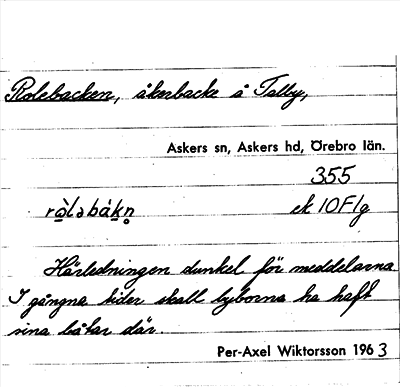 Rolebacken, åkerbacke å Talby,
Askers sn, Askers hd, Örebro län.
355
ek 10F1g
Härledningen dunkel för meddelarna
I gångna tider skall byborna ha haft
sina båtar där.
Per-Axel Wiktorsson 1963